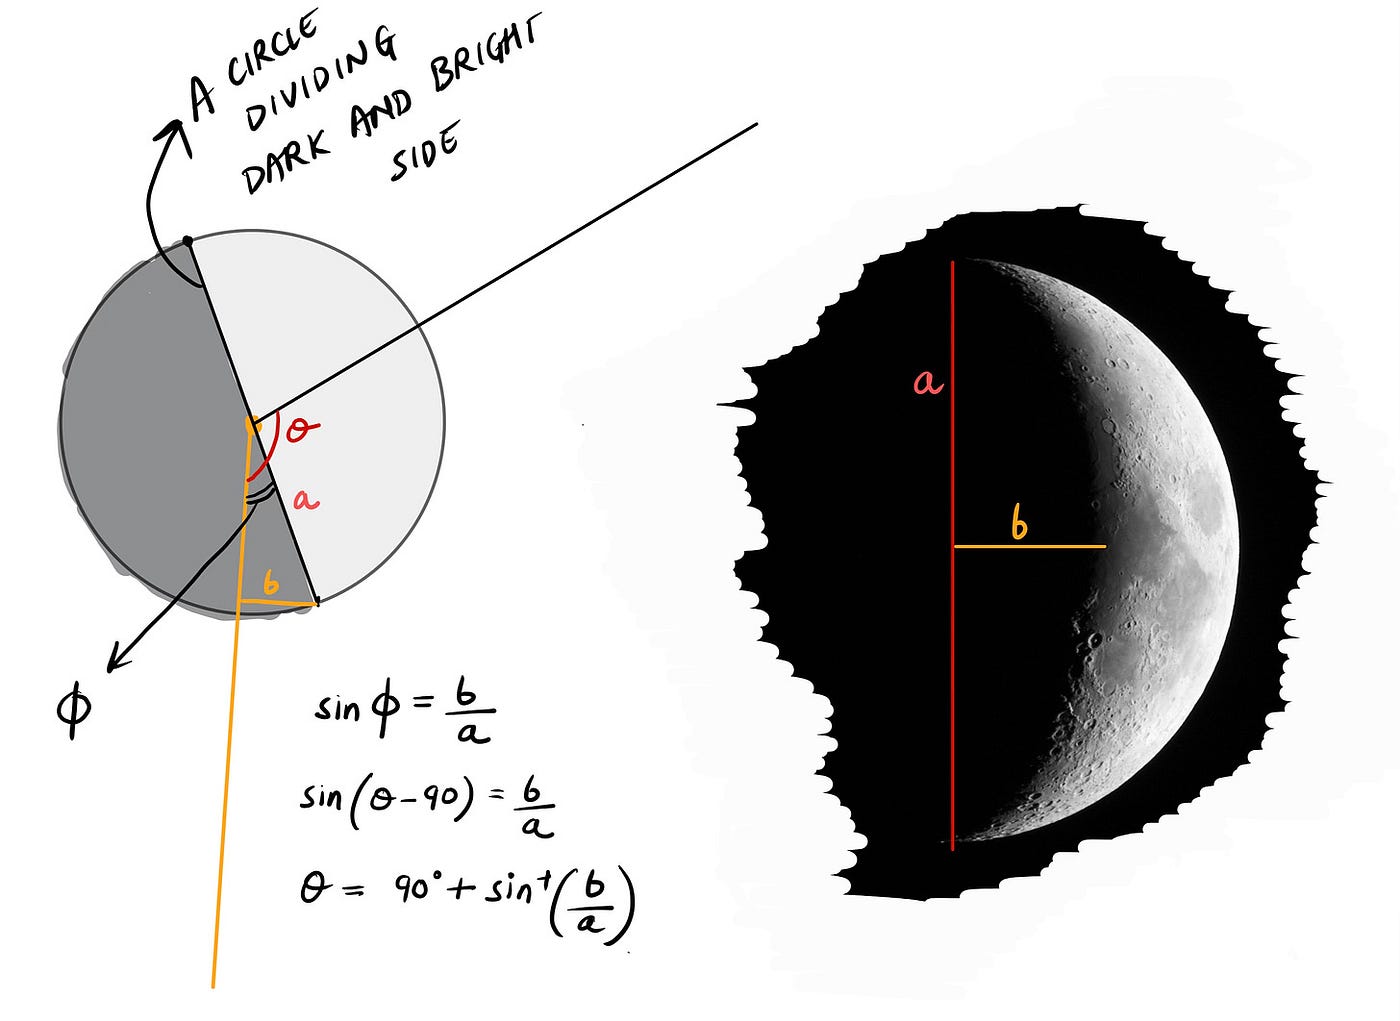 A CIRCLE
DIVIDING
DARK AND BRIGHT
SIDE
θ
a
b
ϕ
sin ϕ = b/a
sin(θ-90) = b/a
θ = 90° + sin⁻¹(b/a)
a
b